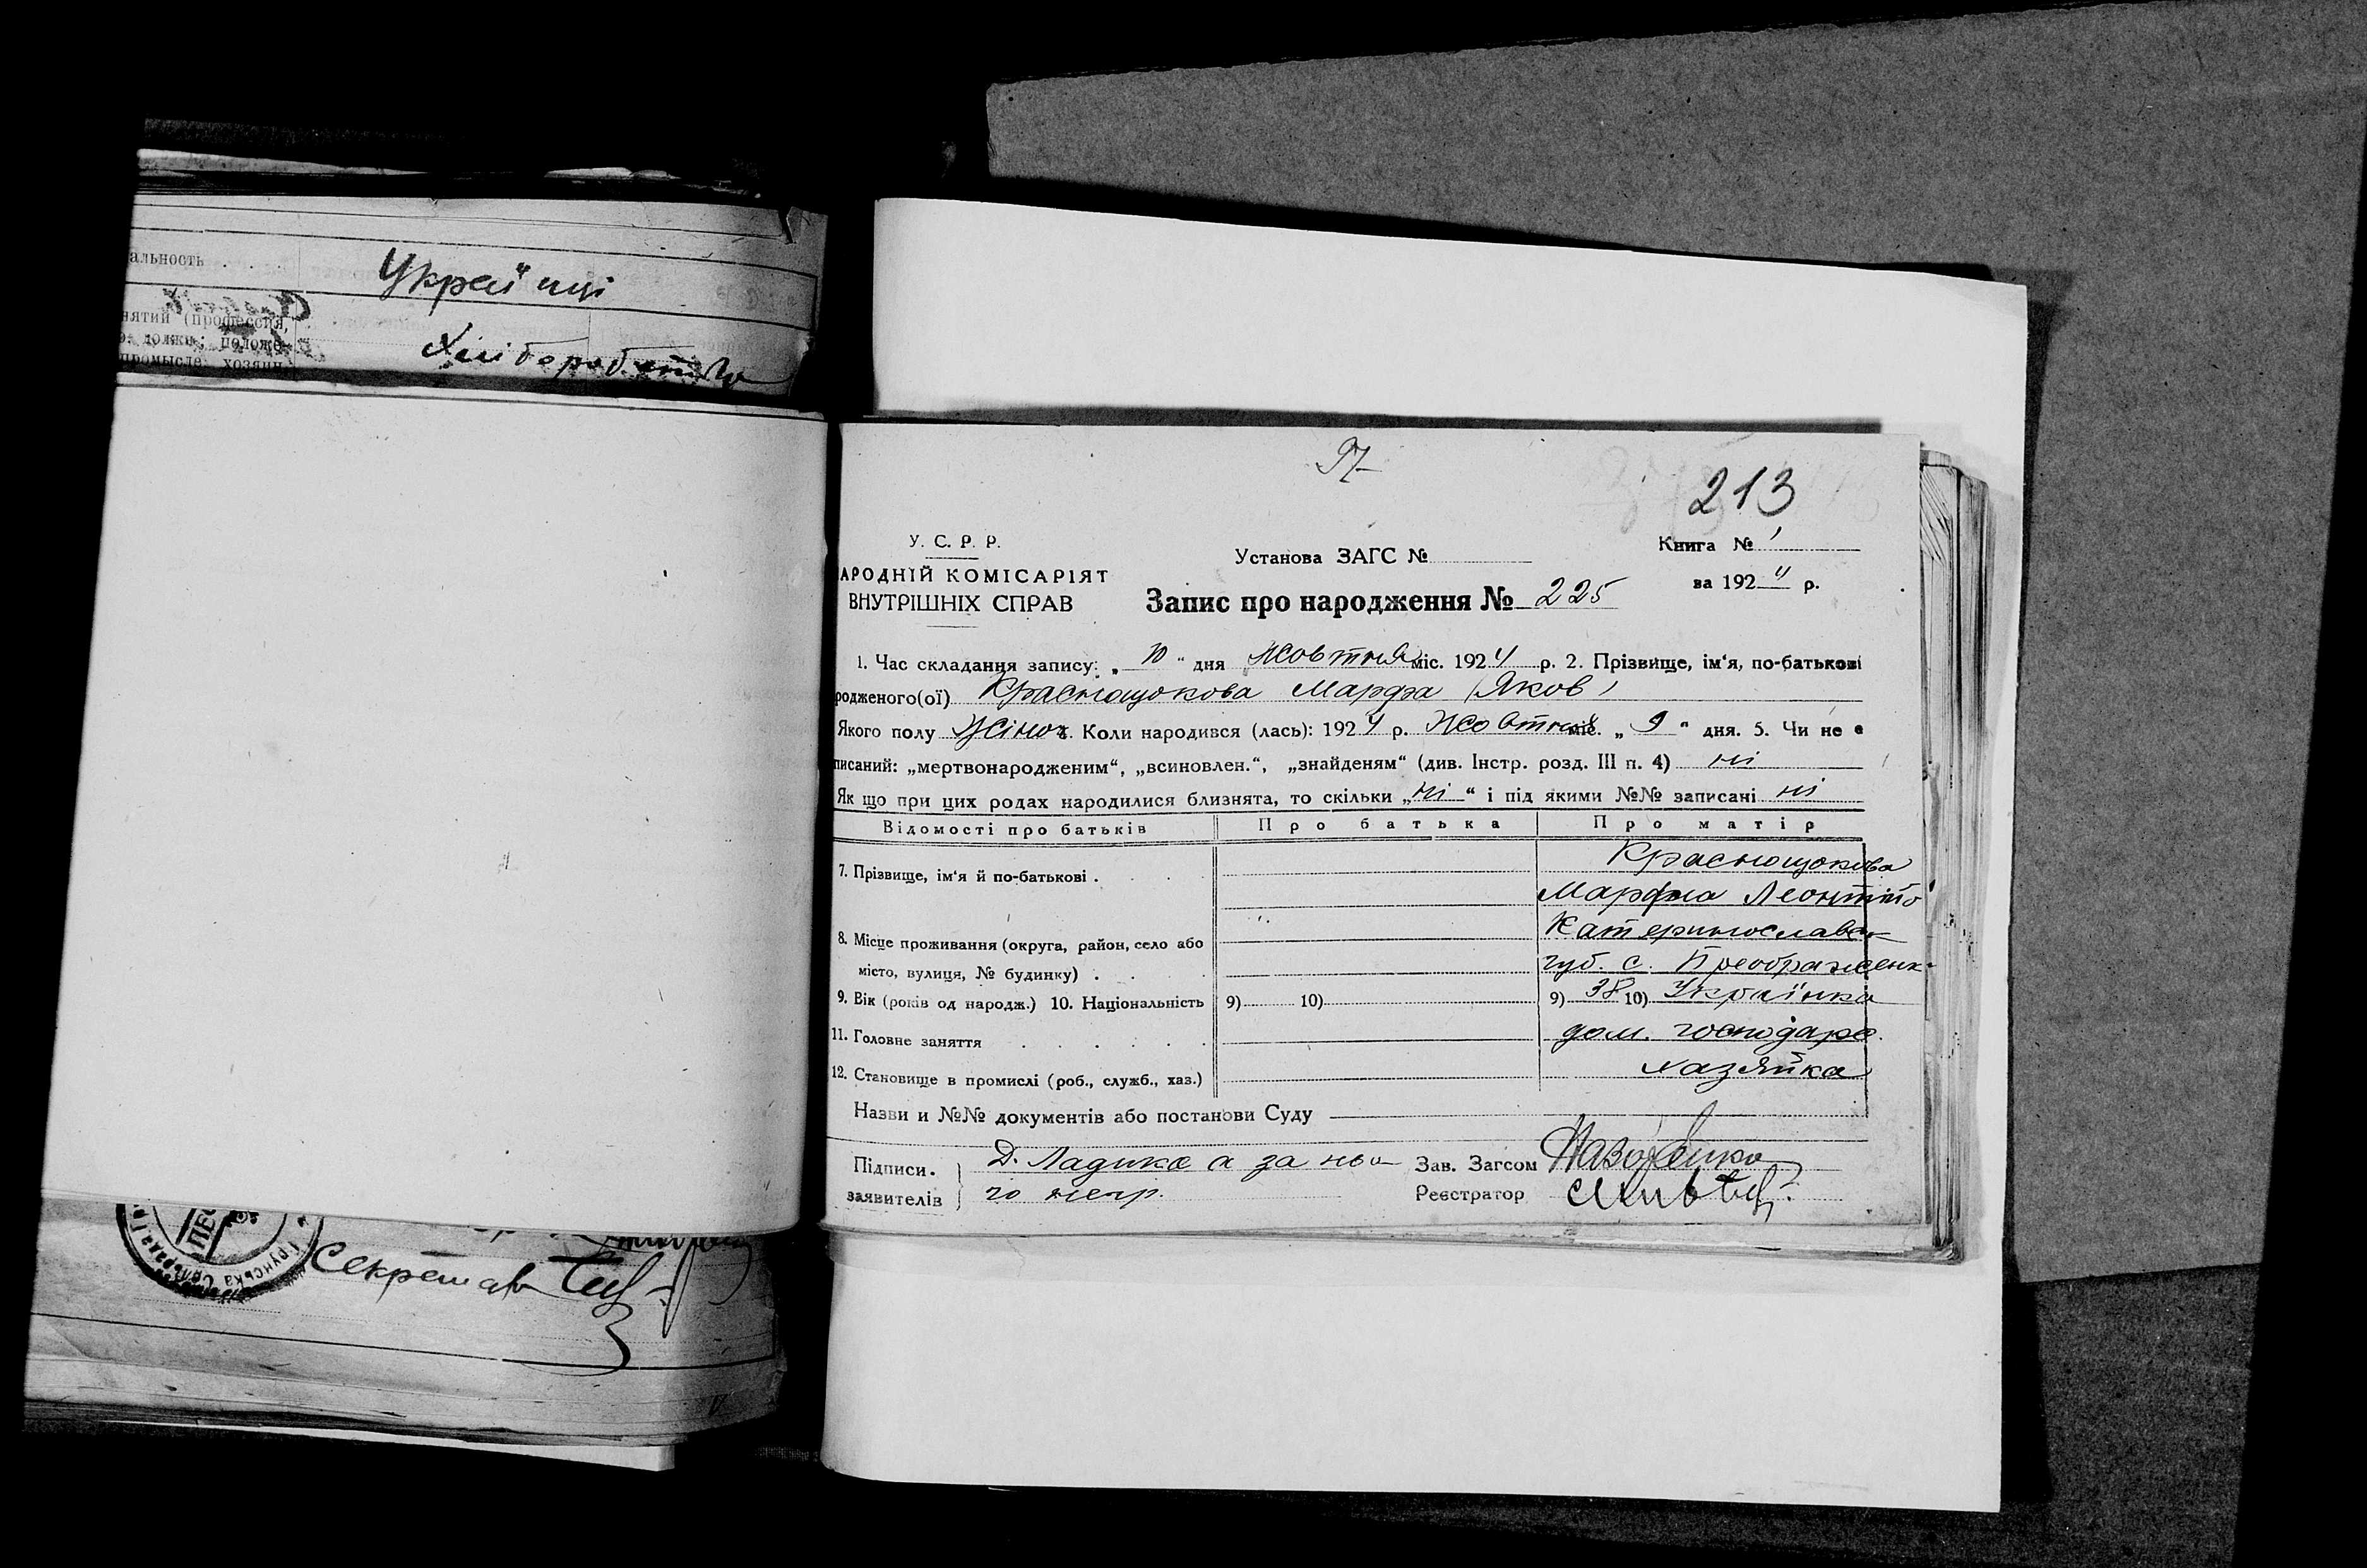 альность . . . .
Україці
нятий (профессия,
промысле: хозяин
Хліборобство
Секретар
97
213
У. С. Р. Р.
АРОДНІЙ КОМІСАРІЯТ
ВНУТРІШНІХ СПРАВ
Установа ЗАГС №
Книга № 1
за 1924 р.
Запис про народження № 225
1. Час складання запису: „10“ дня Жовтня міс. 1924 р. 2. Прізвище, ім‘я, по-батькові
родженого(ої) Краснощокова Марфа Яков
Якого полу Жіноч. Коли народився (лась): 1924 р. Жовтня міс. „9“ дня. 5. Чи не є
писаний: „мертвонародженим“, „всиновлен.“, „знайденям“ (див. Інстр. розд. III п. 4) ні
Як що при цих родах народилися близнята, то скільки „ні“ і під якими №№ записані ні
Відомості про батьків Про батька Про матір
7. Прізвище, ім‘я й по-батькові . Краснощокова
Марфа
8. Місце проживання (округа, район, село або Катеринославськ
місто, вулиця, № будинку) . губ. с. Преображенк
9. Вік (років од народж.) 10. Національність 9) 10) 9) 38 10) Українка
11. Головне заняття дом. господарс.
12. Становище в промислі (роб., служб., хаз.) хазяйка
Назви и №№ документів або постанови Суду
Підписи. Д. Ладика а за ньо Зав. Загсом
заявителів го негр. Реєстратор